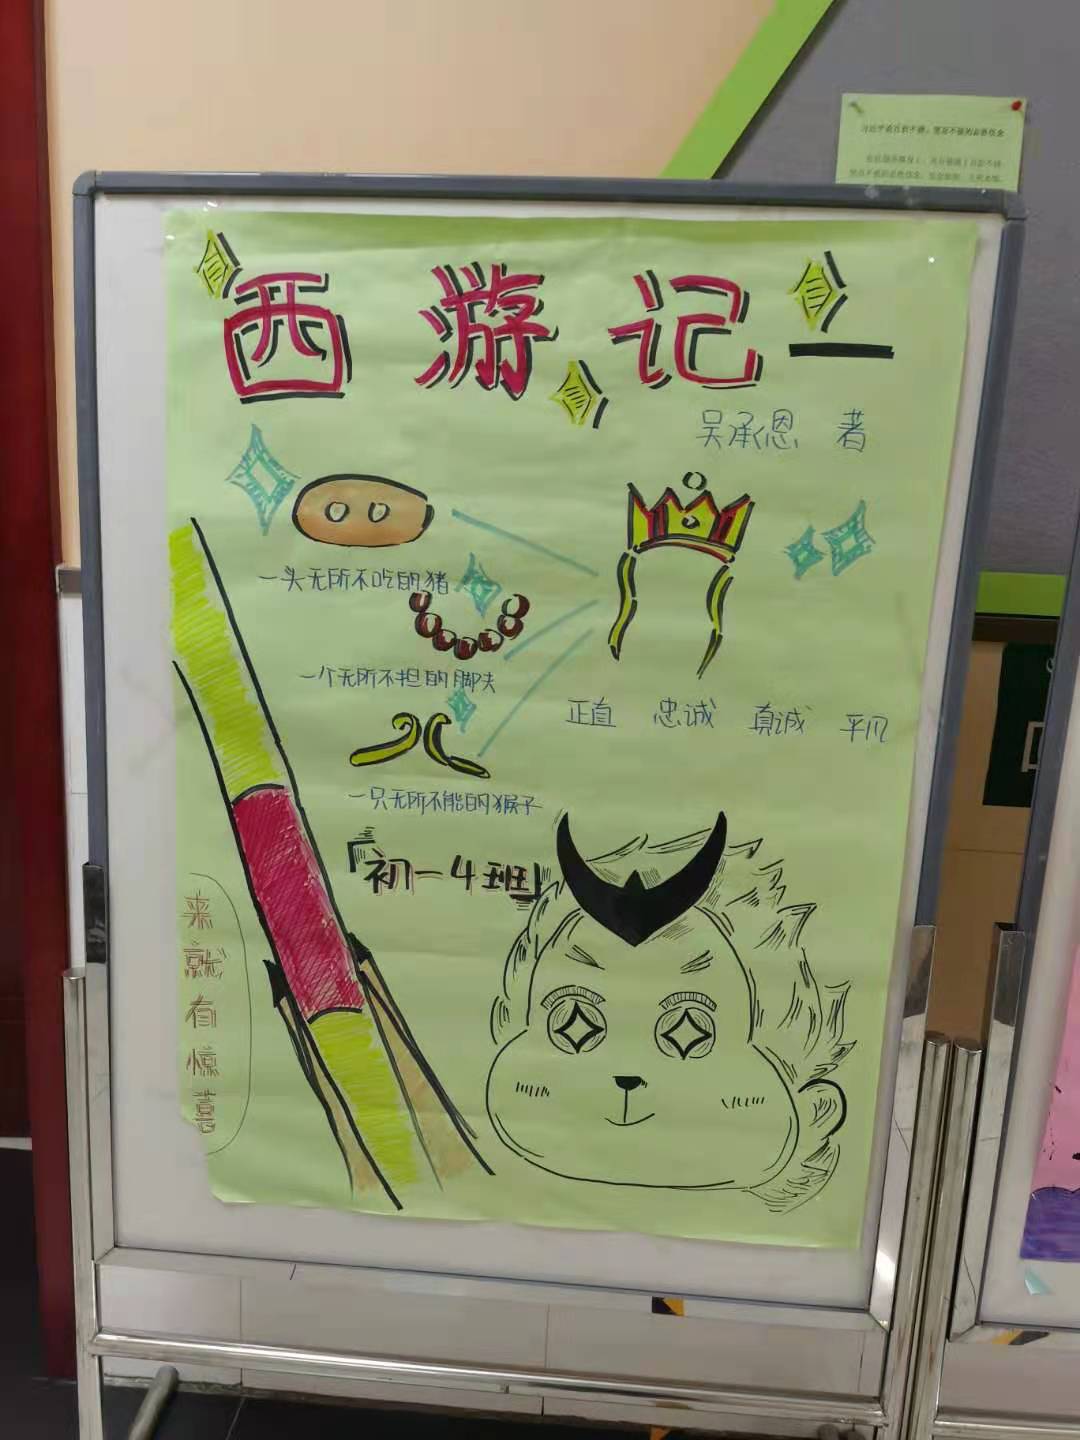 西游记
吴承恩 著
一头无所不吃的猪
一个无所不担的脚夫
一只无所不能的猴子
正直 忠诚 真诚 平凡
「初一4班」
来就有惊喜